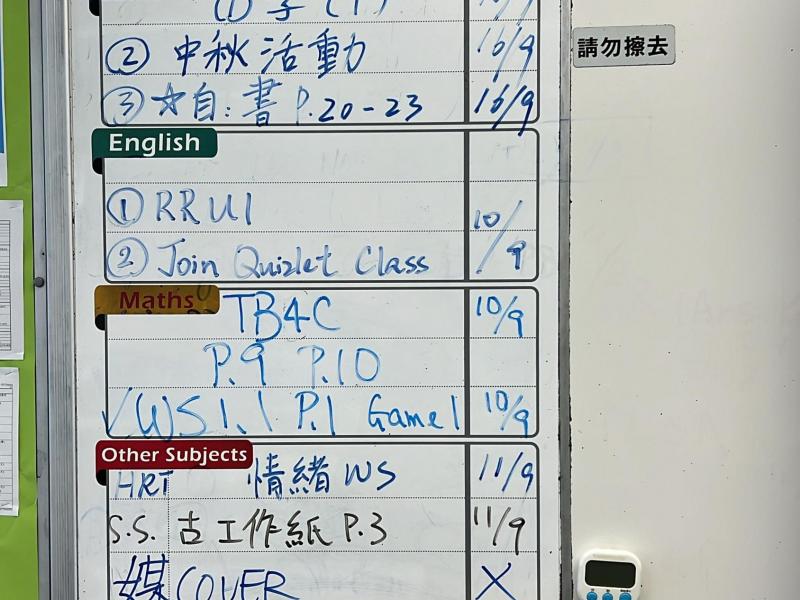 ② 中秋活動 16/9
請勿擦去
③ ☆自：書 P.20-23 16/9
English
① RRU1 10/9
② Join Quizlet Class
Maths
TB4C 10/9
P.9 P.10
✓WS1.1 P.1 Game1 10/9
Other Subjects
HRT 情緒WS 11/9
S.S. 古工作紙 P.3 11/9
媒COVER X